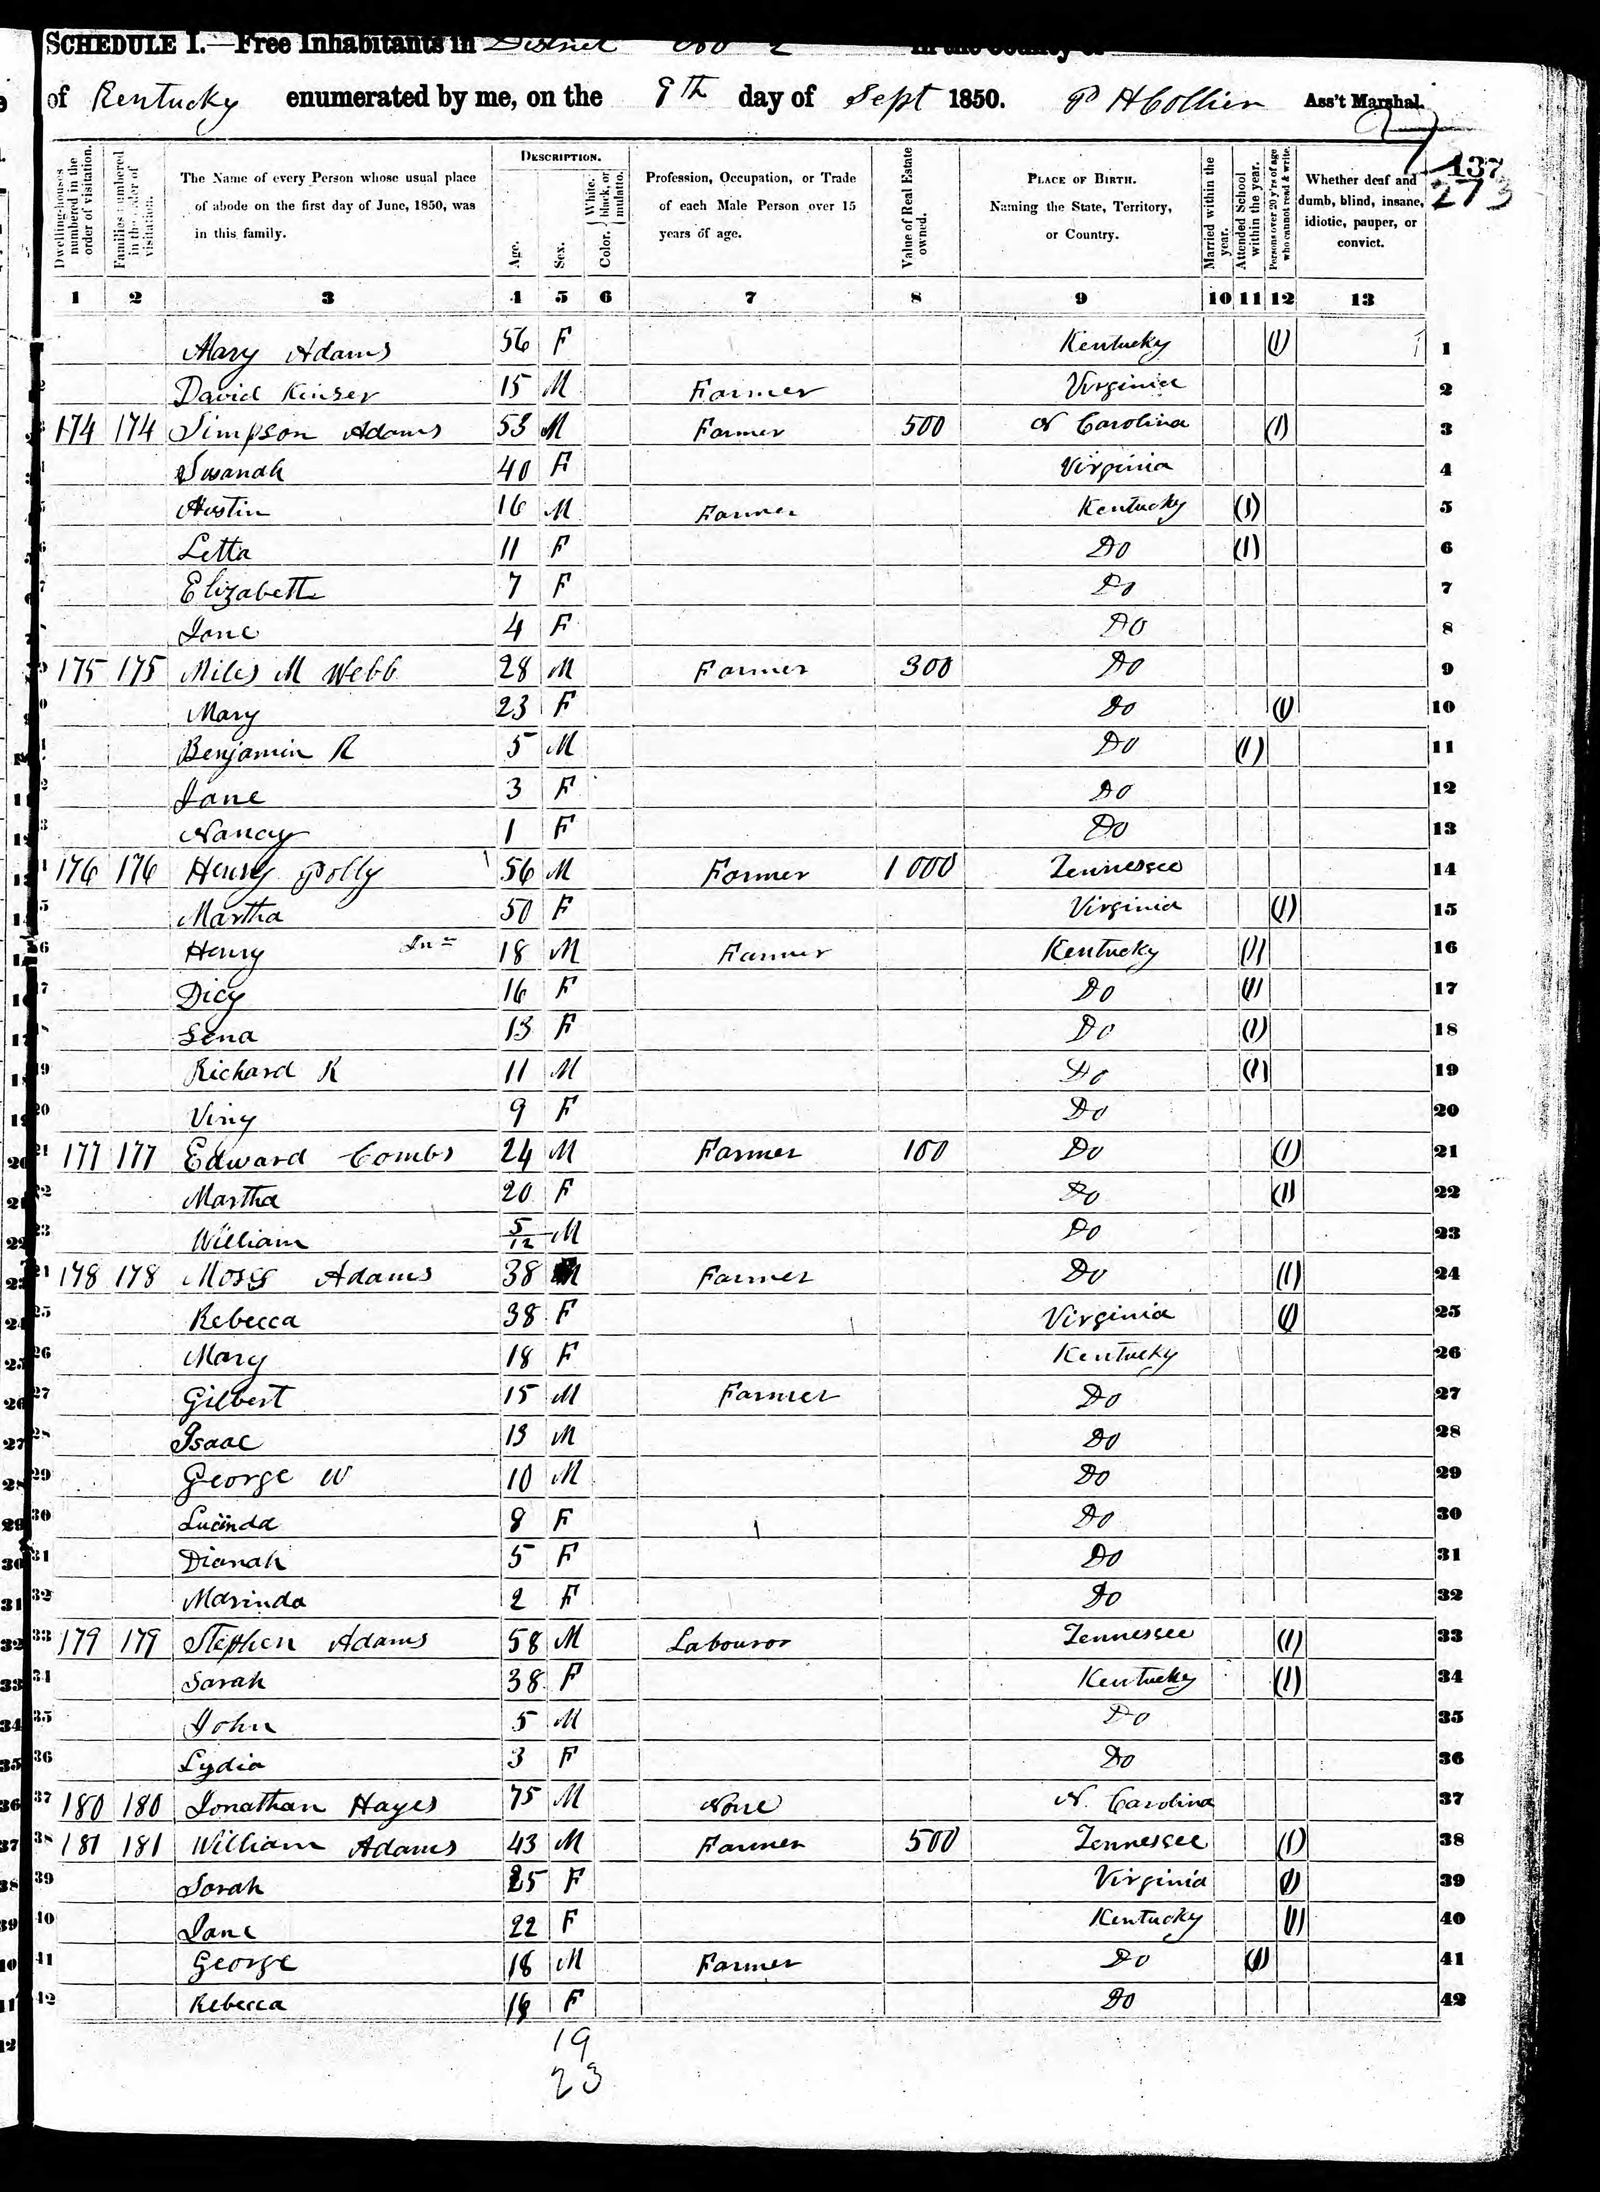 SCHEDULE I.—Free Inhabitants in District No 2 in the County of
of Kentucky enumerated by me, on the 9th day of Sept 1850. P H Collier Ass't Marshal.
137
273
Dwelling-houses numbered in the order of visitation.
Families numbered in the order of visitation.
The Name of every Person whose usual place of abode on the first day of June, 1850, was in this family.
DESCRIPTION.
Age.
Sex.
Color. White, black, or mulatto.
Profession, Occupation, or Trade of each Male Person over 15 years of age.
Value of Real Estate owned.
PLACE OF BIRTH. Naming the State, Territory, or Country.
Married within the year.
Attended School within the year.
Persons over 20 y'rs of age who cannot read & write.
Whether deaf and dumb, blind, insane, idiotic, pauper, or convict.
1 2 3 4 5 6 7 8 9 10 11 12 13
Mary Adams 56 F Kentucky (1) 1
David Kinser 15 M Farmer Virginia 2
174 174 Simpson Adams 53 M Farmer 500 N Carolina (1) 3
Susanah 40 F Virginia 4
Austin 16 M Farmer Kentucky (1) 5
Letta 11 F Do (1) 6
Elizabeth 7 F Do 7
Jane 4 F Do 8
175 175 Miles M Webb 28 M Farmer 300 Do 9
Mary 23 F Do (1) 10
Benjamin R 5 M Do (1) 11
Jane 3 F Do 12
Nancy 1 F Do 13
176 176 Henry Polly 56 M Farmer 1000 Tennessee 14
Martha 50 F Virginia (1) 15
Henry Jnr 18 M Farmer Kentucky (1) 16
Dicy 16 F Do (1) 17
Lena 13 F Do (1) 18
Richard K 11 M Do (1) 19
Viny 9 F Do 20
177 177 Edward Combs 24 M Farmer 100 Do (1) 21
Martha 20 F Do (1) 22
William 5/12 M Do 23
178 178 Moses Adams 38 M Farmer Do (1) 24
Rebecca 38 F Virginia (1) 25
Mary 18 F Kentucky 26
Gilbert 15 M Farmer Do 27
Isaac 13 M Do 28
George W 10 M Do 29
Lucinda 8 F Do 30
Dianah 5 F Do 31
Marinda 2 F Do 32
179 179 Stephen Adams 58 M Labouror Tennessee (1) 33
Sarah 38 F Kentucky (1) 34
John 5 M Do 35
Lydia 3 F Do 36
180 180 Jonathan Hayes 75 M None N. Carolina 37
181 181 William Adams 43 M Farmer 500 Tennessee (1) 38
Sarah 25 F Virginia (1) 39
Jane 22 F Kentucky (1) 40
George 18 M Farmer Do (1) 41
Rebecca 16 F Do 42
19
23